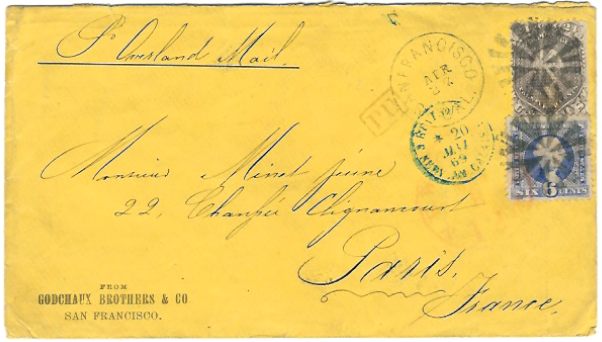 Pr Overland Mail.
SAN FRANCISCO
APR
27
CAL.
PD
20
MAI
69
24
SIX 6 CENTS
Monsieur Minet jeune
22, Chaussée Clignancourt
Paris.
France.
FROM
GODCHAUX BROTHERS & CO
SAN FRANCISCO.